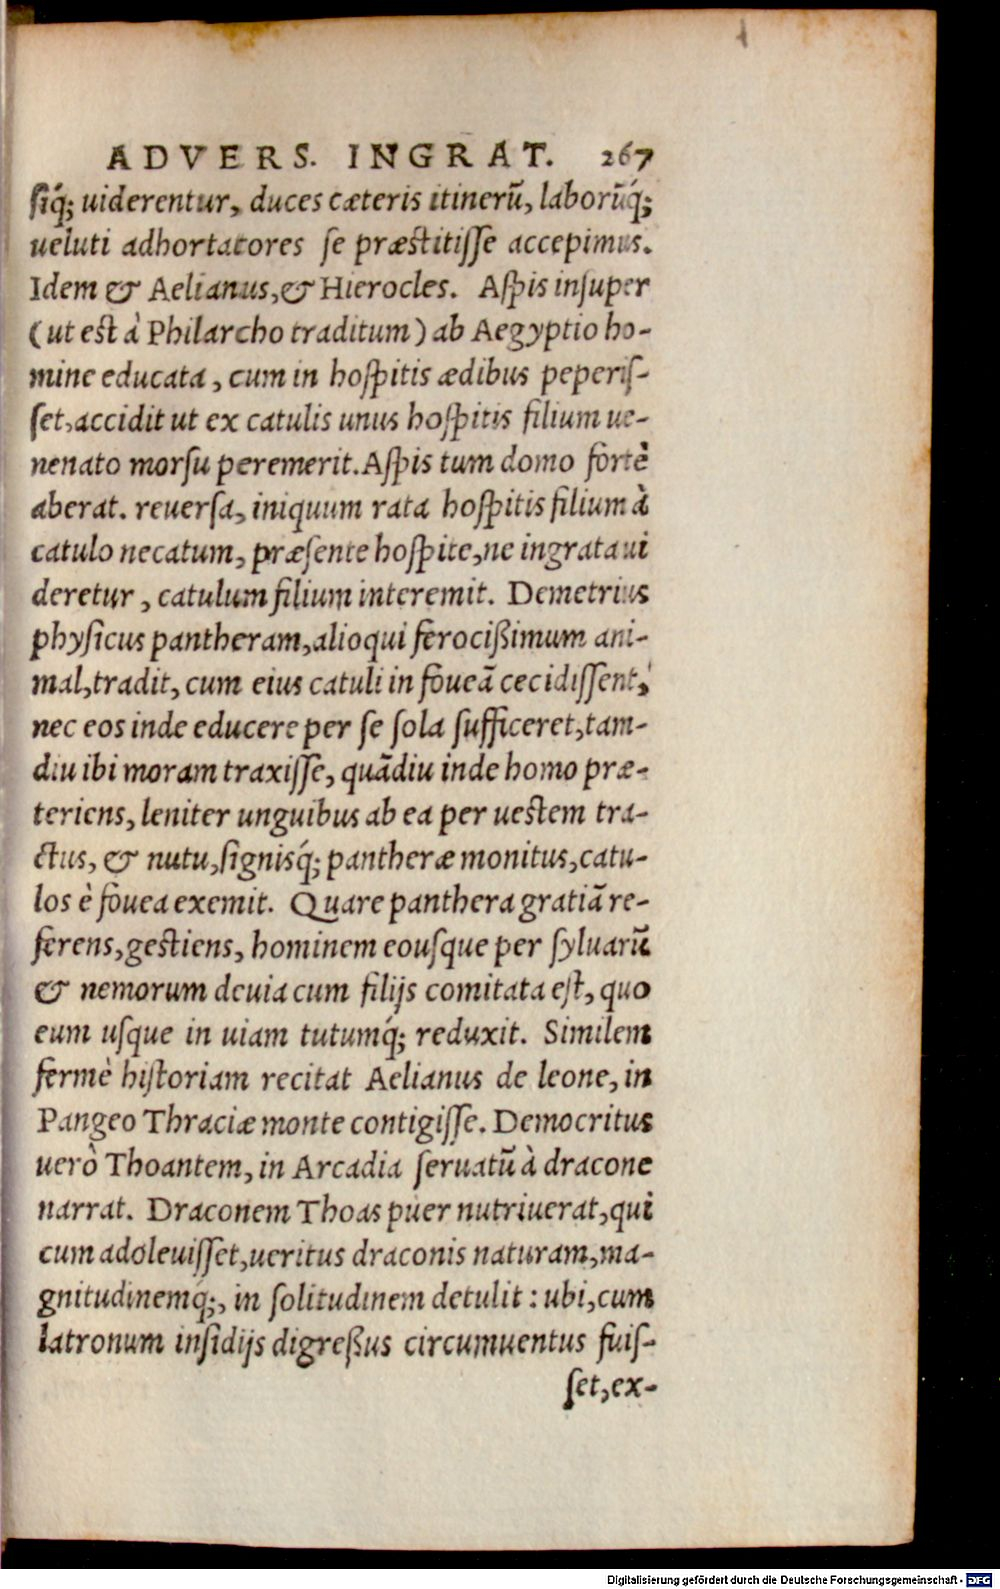 ADVERS. INGRAT. 267
ſiq́; uiderentur, duces cæteris itinerũ, laborũq́;
ueluti adhortatores ſe præſtitiſſe accepimus.
Idem & Aelianus, & Hierocles. Aſpis inſuper
(ut eſt à Philarcho traditum) ab Aegyptio ho-
mine educata, cum in hoſpitis ædibus peperiſ-
ſet, accidit ut ex catulis unus hoſpitis filium ue-
nenato morſu peremerit. Aſpis tum domo fortè
aberat. reuerſa, iniquum rata hoſpitis filium à
catulo necatum, præſente hoſpite, ne ingrata ui
deretur, catulum filium interemit. Demetrius
phyſicus pantheram, alioqui ferocißimum ani-
mal, tradit, cum eius catuli in foueã cecidiſſent,
nec eos inde educere per ſe ſola ſufficeret, tam-
diu ibi moram traxiſſe, quãdiu inde homo præ-
teriens, leniter unguibus ab ea per ueſtem tra-
ctus, & nutu, ſignisq́; pantheræ monitus, catu-
los è fouea exemit. Quare panthera gratiã re-
ferens, geſtiens, hominem eouſque per ſyluarũ
& nemorum deuia cum filijs comitata eſt, quo
eum uſque in uiam tutumq́; reduxit. Similem
fermè hiſtoriam recitat Aelianus de leone, in
Pangeo Thraciæ monte contigiſſe. Democritus
uerò Thoantem, in Arcadia ſeruatũ à dracone
narrat. Draconem Thoas puer nutriuerat, qui
cum adoleuiſſet, ueritus draconis naturam, ma-
gnitudinemq́;, in ſolitudinem detulit : ubi, cum
latronum inſidijs digreßus circumuentus fuiſ-
ſet, ex-
Digitalisierung gefördert durch die Deutsche Forschungsgemeinschaft - DFG